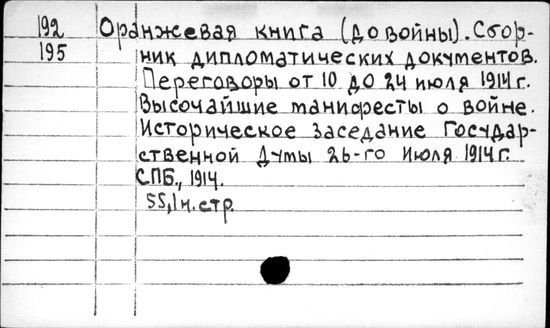 192 Оранжевая книга (до войны). Сбор-
195 ник дипломатических документов.
Переговоры от 10 до 24 июля 1914 г.
Высочайшие манифесты о войне.
Историческое заседание Государ-
ственной Думы 26-го Июля 1914 г.
СПБ., 1914.
55, 1 н. стр.